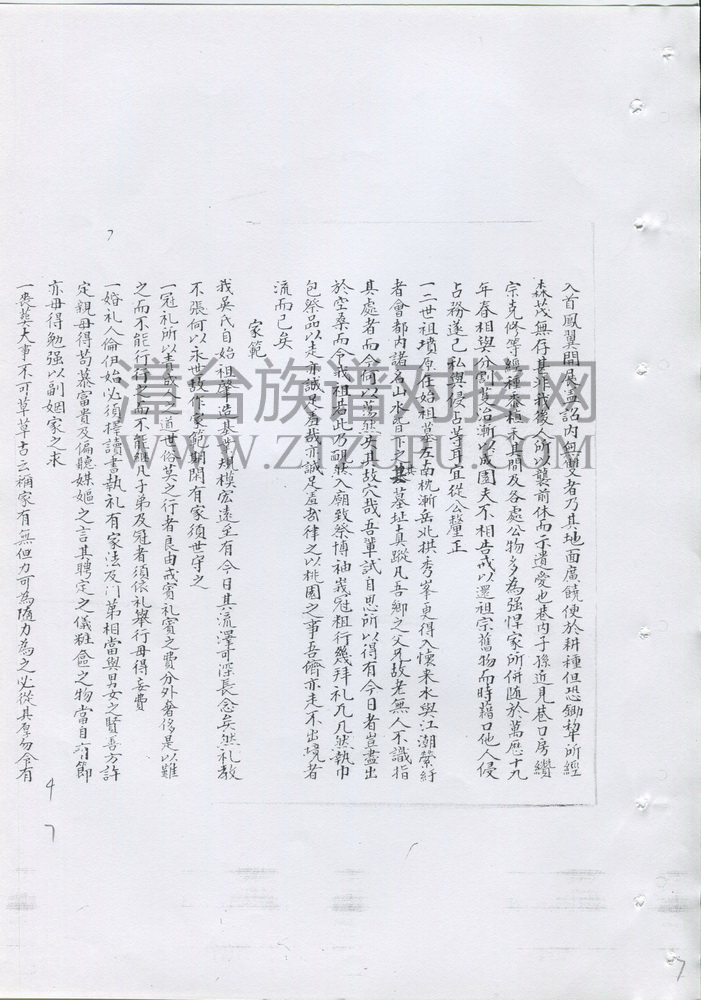 入首鳳翼開展盡認內無雙者乃其地面廣饒便於耕種但恐鋤犂所經
森茂無存甚非我後人所以襲前休而示遺愛也巷內子孫近見巷口房纘
宗克修等 種黍穗禾其間及各處公物多為强悍家所併随於萬歷十九
年春相與分割芟治漸以成園夫不相告戒以還祖宗舊物而時藉口他人侵
占務遂己私與侵占等耳宜從公釐正
一二世祖墳原在始祖墓左南枕漸岳北拱秀峯更得入懷来水與江潮縈紆
者會都內諸名山水皆亦之共其墓址真蹤凡吾鄉之父兄故老無人不識指
其處者而今何以蕩然失其故穴哉吾輩試自思所以得有今日者豈盡出
於空桑而令我祖若此乃靦然入廟致祭博袖峩冠粗行幾拜礼几几然執巾
包祭品以走亦誠足羞哉亦誠足羞哉律之以桃園之事吾儕亦走不出境者
流而已矣
家範
我吳氏自始祖肇造基業規模宏遠至有今日其流澤可深長念矣然礼教
不張何以永世故作家範期閑有家須世守之
一冠礼所以責成人道世俗莫之行者良由戒賓礼賓之費分外奢侈是以難
之而不能行行之而不能繼凡子弟及冠者須依礼舉行毋得妄費
一婚礼人倫伊始必須擇讀書執礼有家法及门第相當與男女之賢善方許
定親毋得苟慕富貴及偏聽媒嫗之言其聘定之儀粧奩之物當自 節
亦毋得勉强以副姻家之求
一喪葬大事不可草草古云稱家有無但力可為隨力為之必從其厚勿令有
4
7
7
道台族谱对接网
WWW.ZTZUPU.COM